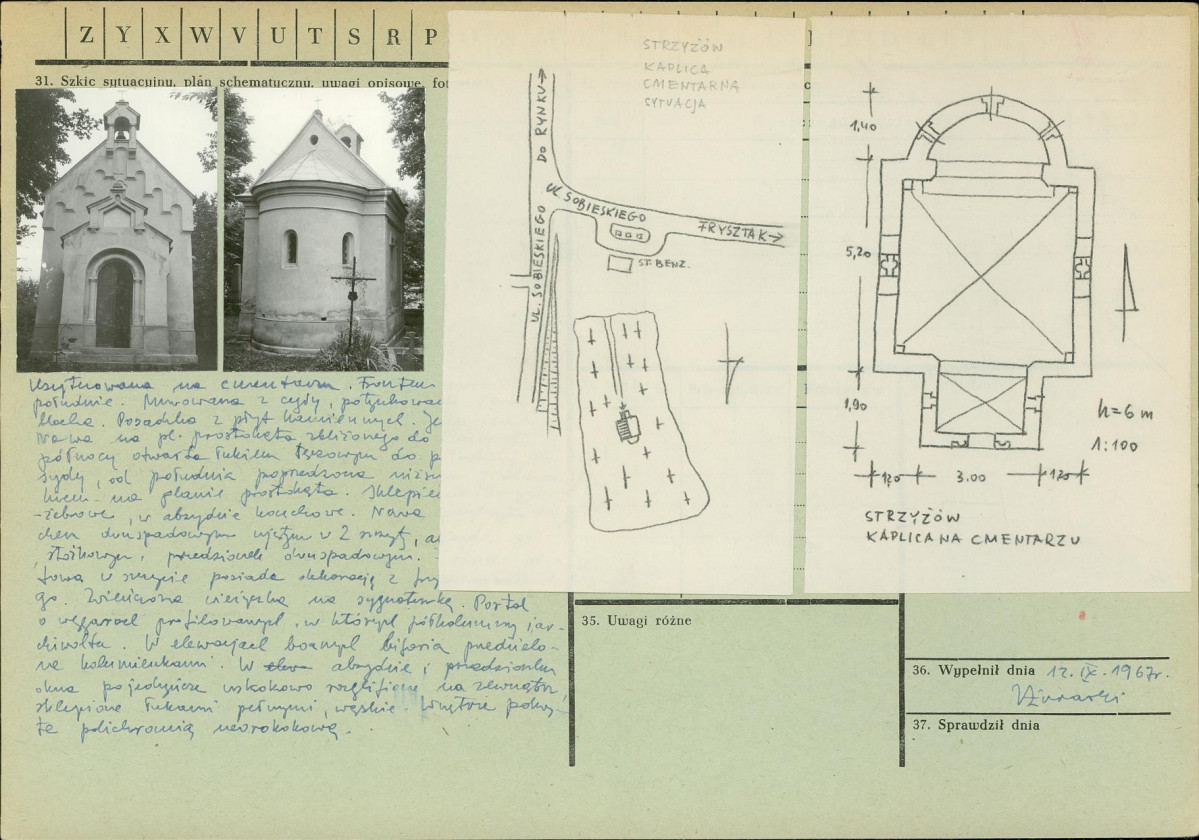 Z Y X W V U T S R P
31. Szkic sytuacyjny, plan schematyczny, uwagi opisowe, fo
Usytuowana na cmentarzu. Frontem
południe. Murowana z cegły, potynkowa
blacha. Posadzka z płyt kamiennych. Je
Nawa na pl. prostokąta zbliżonego do
północy otwarta łukiem tęczowym do p
sydy, od południa poprzedzona niższ
kiem na planie prostokąta. Sklepie
-żebrowe, w absydzie konchowe. Nawa
chem dwuspadowym ujętym w 2 szczyty, a
stożkowym, przedsionek dwuspadowym.
towa w szczycie posiada dekorację z fry
go. Zwieńczona wieżyczką na sygnaturkę. Portal
o węgarach profilowanych, w których półkolumny i ar-
chiwolta. W elewacjach bocznych biforia przedzielo-
ne kolumienkami. W absydzie i przedsionku
okna pojedyńcze uskokowo rozglifione na zewnątrz,
sklepione łukami pełnymi, wąskie. Wnętrze pokry-
te polichromią neorokokową.
STRZYŻÓW
KAPLICA
CMENTARNA
SYTUACJA
DO RYNKU
UL. SOBIESKIEGO
FRYSZTAK
UL. SOBIESKIEGO
ST. BENZ.
1,40
5,20
1,90
1,20
3.00
1,20
h=6 m
1:100
STRZYŻÓW
KAPLICA NA CMENTARZU
35. Uwagi różne
36. Wypełnił dnia 12.IX.1967r.
37. Sprawdził dnia